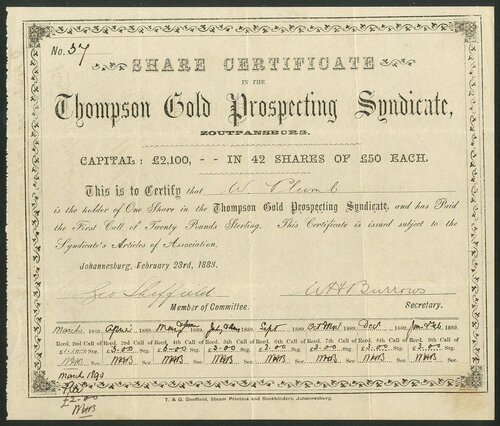 No. 37
SHARE CERTIFICATE
IN THE
Thompson Gold Prospecting Syndicate,
ZOUTPANSBURG.
CAPITAL: £2,100, - - IN 42 SHARES OF £50 EACH.
This is to Certify that W Plumb
is the holder of One Share in the Thompson Gold Prospecting Syndicate, and has Paid
the First Call of Twenty Pounds Sterling. This Certificate is issued subject to the
Syndicate's Articles of Association.
Johannesburg, February 23rd, 1888.
Geo Sheffield WHBurrows
Member of Committee. Secretary.
March 1889, April 1889, May June 1889, July Aug 1889, Sept 1889, Oct Nov 1889, Dec 1889, Jan Feb 1889.
Recd. 2nd Call of Recd. 3rd Call of Recd. 4th Call of Recd. 5th Call of Recd. 6th Call of Recd. 7th Call of Recd. 8th Call of Recd. 9th Call of
Stg. £3-00 Stg. £3-00 Stg. £3-00 Stg. £3-00 Stg. £3-00 Stg. £3-00 Stg. £3-00 Stg.
WHB WHB WHB WHB WHB WHB WHB WHB
March 1890
£2-00
WHB
T. & G. Sheffield, Steam Printers and Bookbinders, Johannesburg.